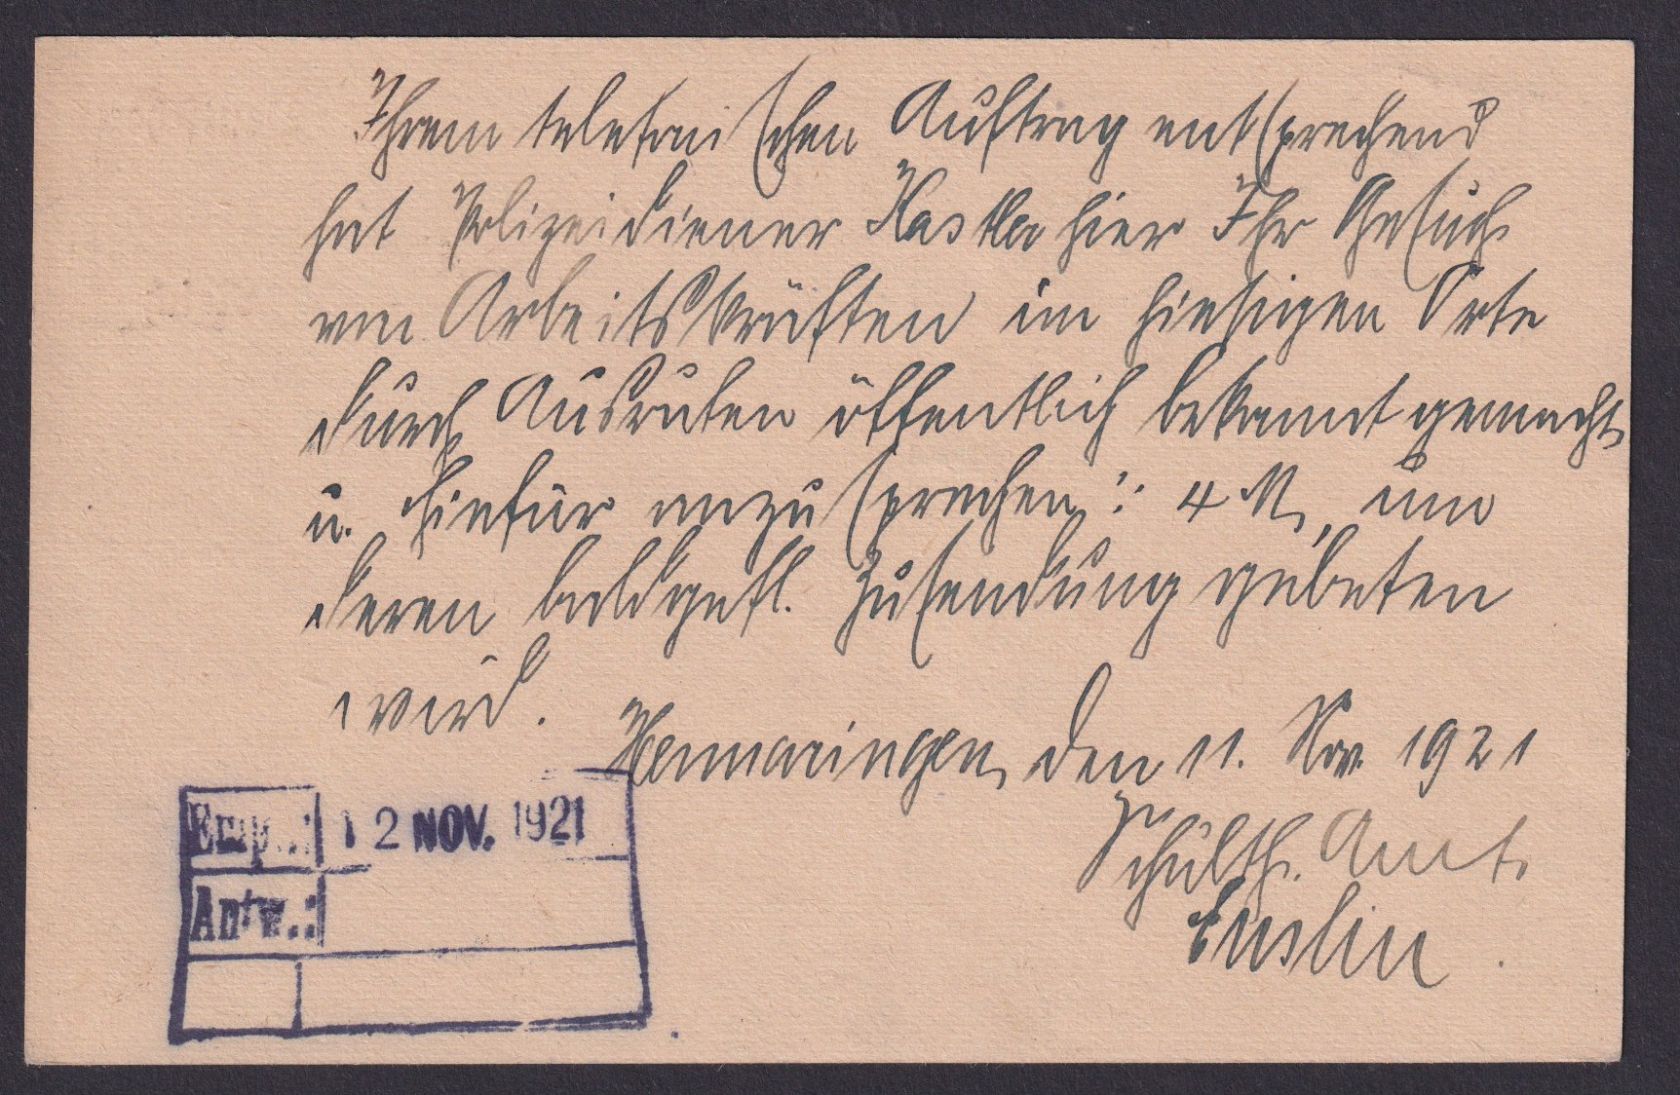 Ihrem telefonischen Auftrag entsprechend
hat Polizeidiener Kastler hier Ihr Gesuch
von Arbeitskräften im hiesigen Orte
durch Ausrufen öffentlich bekannt gemacht
u. hiefür anzusprechen: 4 M, um
deren baldgefl. Zusendung gebeten
wird.
Hermaringen, den 11. Nov. 1921
Schulth. Amt.
Enslin
Empf.: 12 NOV. 1921
Antw.: